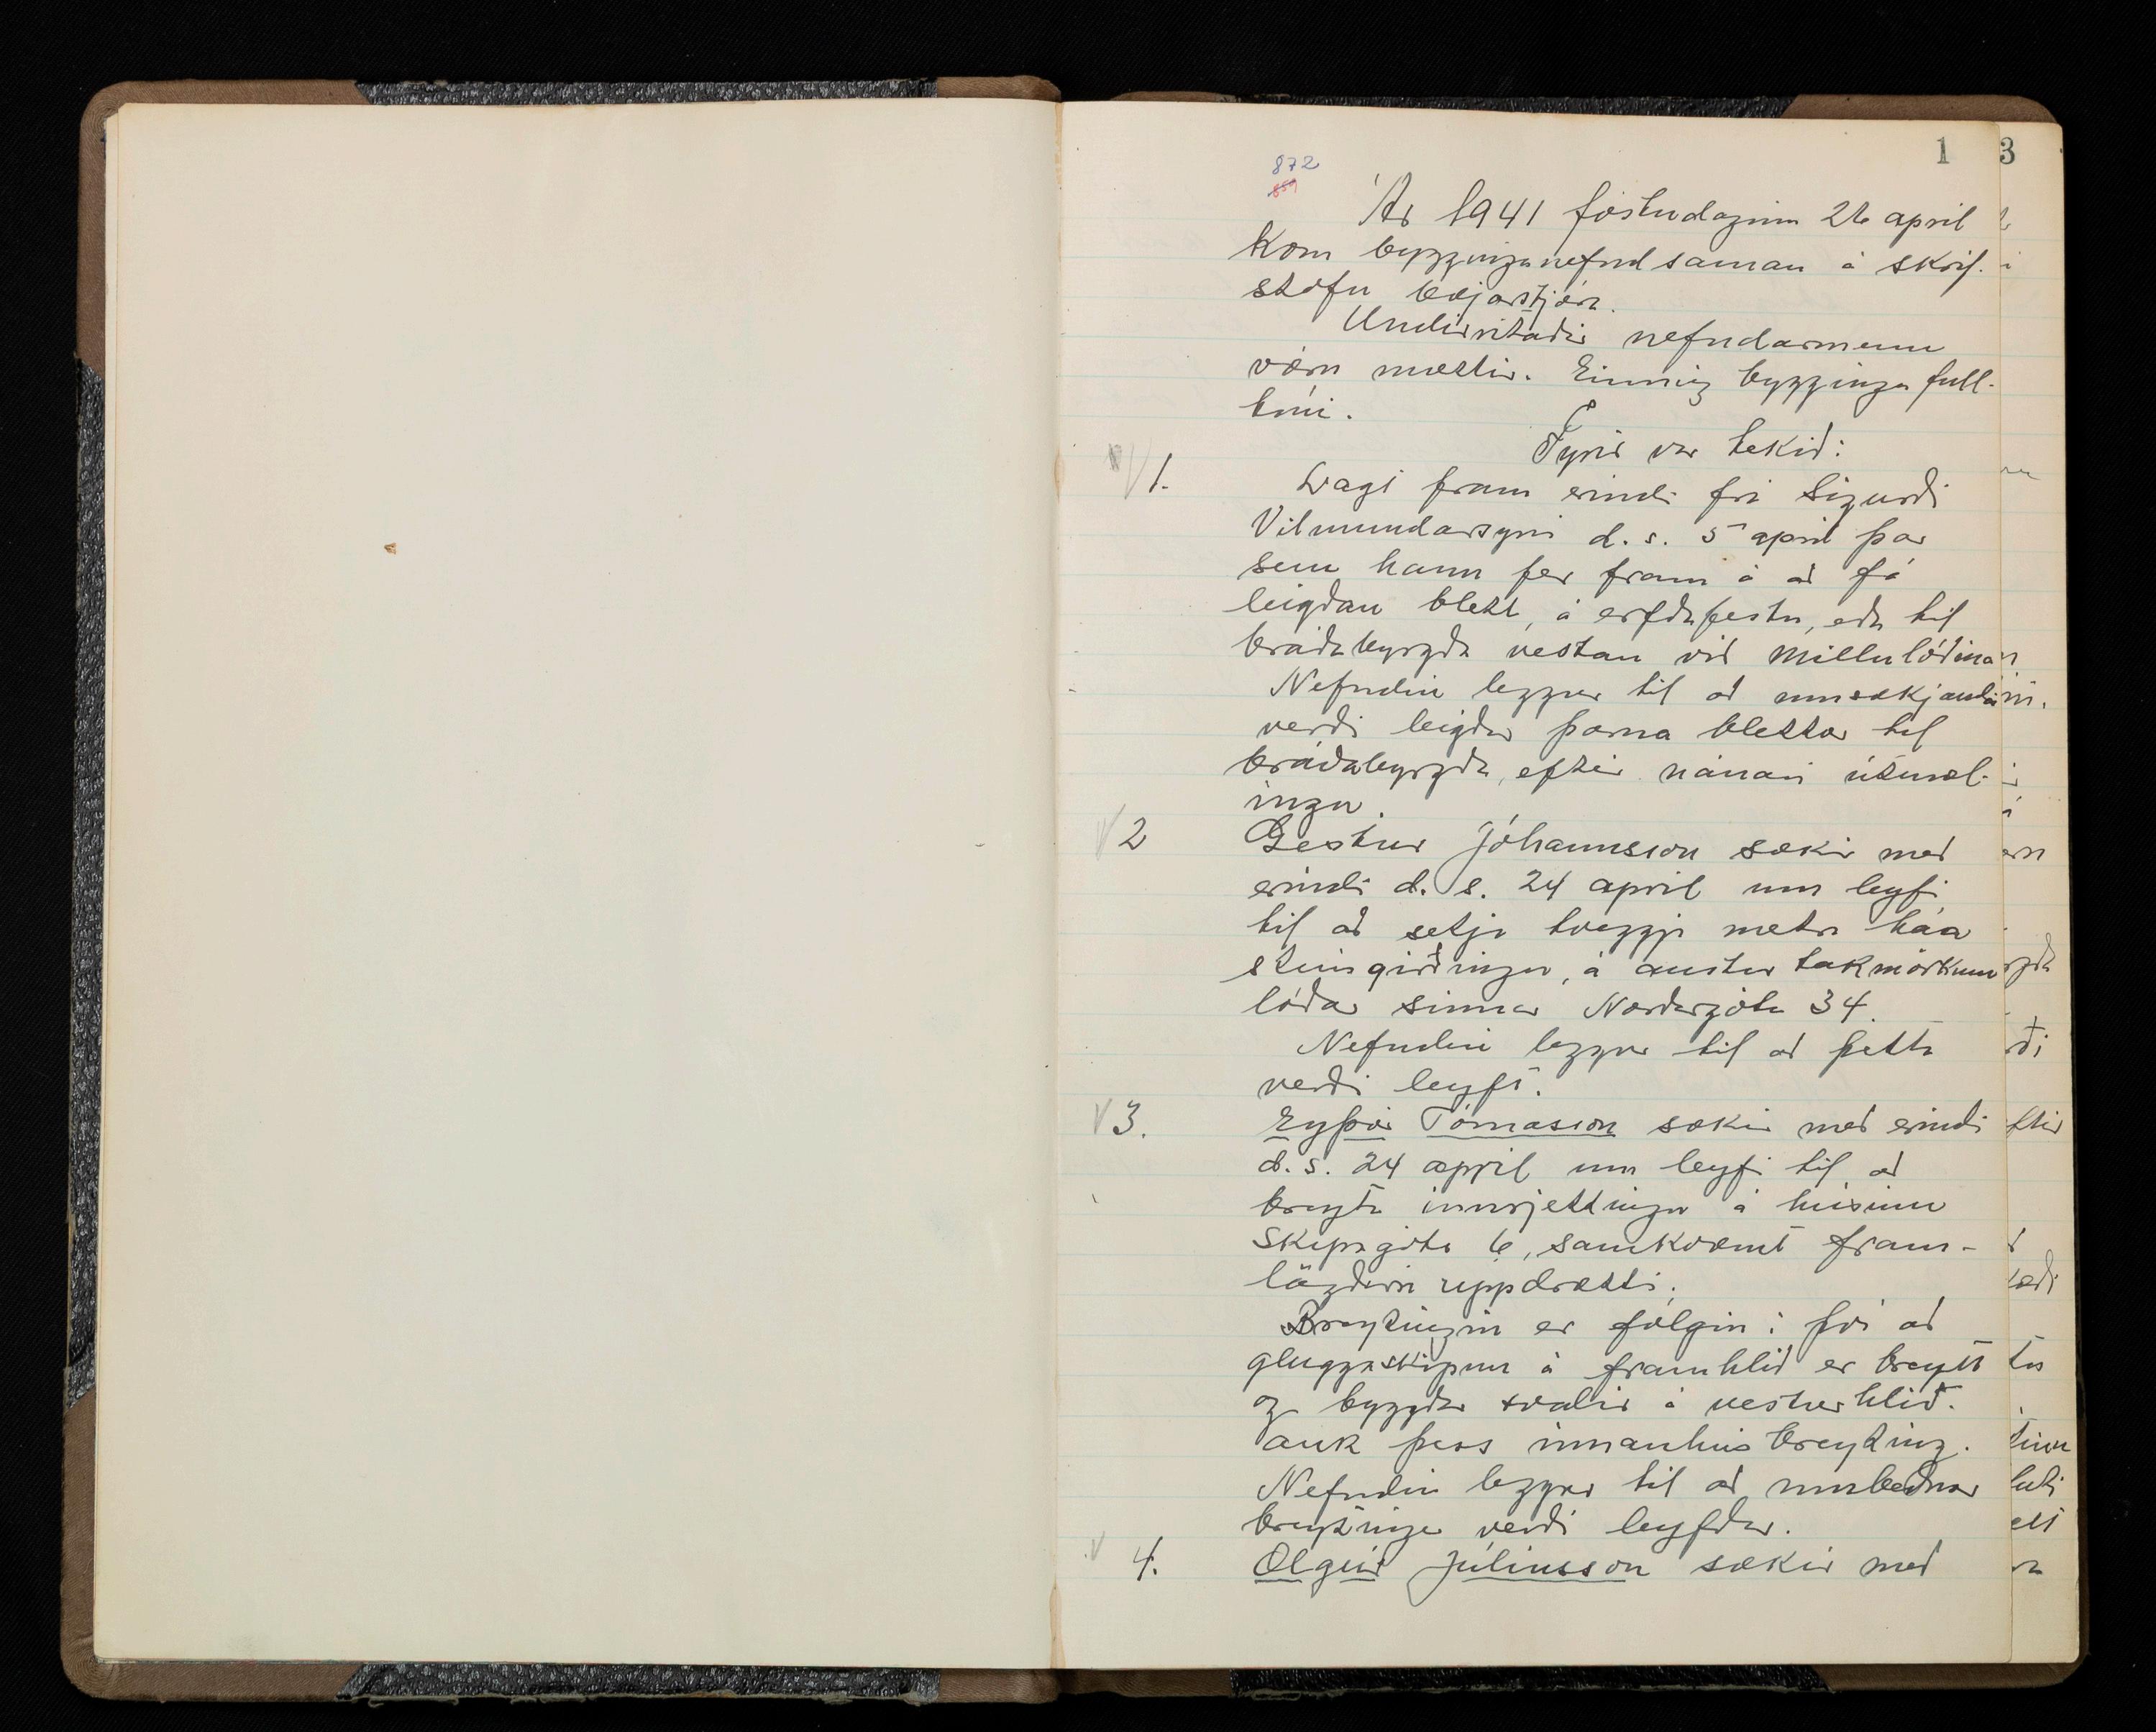 1
3
872
859
Ár 1941 föstudaginn 26 april
kom bygginganefnd saman á skrif-
stofu bæjarstjóra.
Undirritaðir nefndarmenn
voru mættir. Einnig bygginga full-
trúi.
Fyrir var tekið:
1. Lagt fram erindi frá Sigurði
Vilmundarsyni d.s. 5 april þar
sem hann fer fram á að fá
leigðan blett, á erfðafestu, eða til
bráðabyrgða vestan við Millulóðina
Nefndin leggur til að umsækjanda
verði leigður þarna blettur til
bráðabyrgða, eftir nánari útmæl-
ingu.
2 Gestur Jóhannsson sækir með
erindi d.s. 24 april um leyfi
til að setja tveggja metra háa
steingirðingu, á austur takmörkum
lóðar sinnar Norðurgötu 34.
Nefndin leggur til að þetta
verði leyft.
3. Eyþór Tómasson sækir með erindi
d.s. 24 april um leyfi til að
breyta innrjettingu á húsinu
Skipagötu 6, samkvæmt fram-
lögðum uppdrætti.
Breytingin er fólgin í því að
gluggaskipun á framhlið er breytt
og byggðar svalir á vesturhlið.
auk þess innanhús breyting.
Nefndin leggur til að umbeðnar
breytingar verði leyfðar.
4. Olgeir Júlíusson sækir með